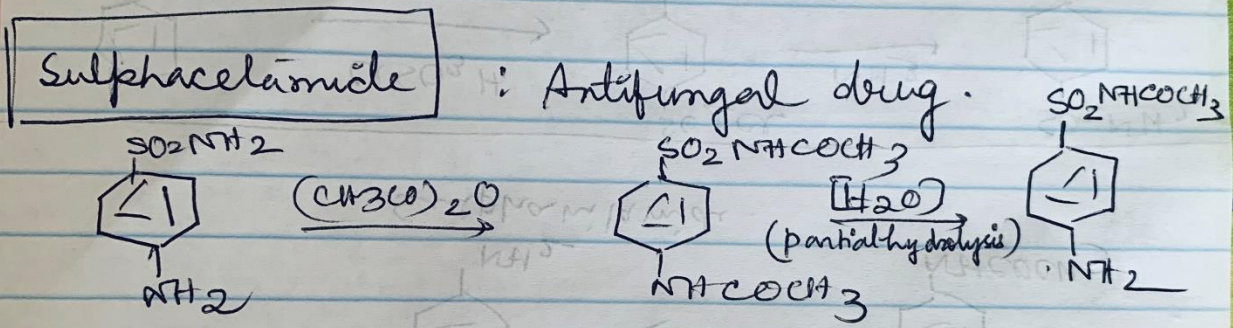 Sulphacetamide : Antifungal drug.
SO2NH2
NH2
(CH3CO)2O
SO2NHCOCH3
NHCOCH3
[H2O)
(partial hydrolysis)
SO2NHCOCH3
NH2